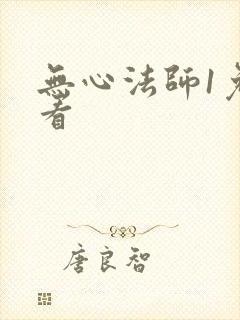 無心法師1
看
唐良智